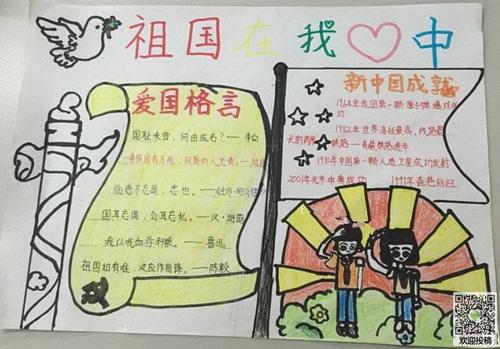 祖国在我♡中
爱国格言
国耻未雪，何由成名？——李白
一身报国有万死，双鬓向人无青。——陆游
临患不忘国，忠也。——左传·昭公
国耳忘国，公耳忘私。——汉·班固
我以我血荐轩辕。——鲁迅
祖国如有难，汝应作前锋。——陈毅
新中国成就
1964年我国第一颗原子弹爆炸成功
1982年世界海拔最高、线路最
长的高原铁路——青藏铁路通车
1970年中国第一颗人造卫星成功发射
2001年北京申奥成功 1997年香港回归
欢迎投稿